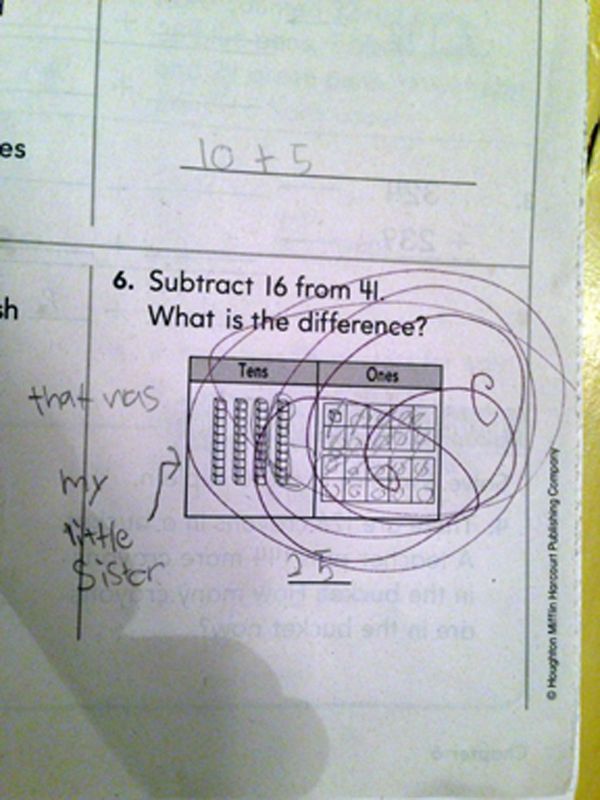 es
10 + 5
6. Subtract 16 from 41.
What is the difference?
sh
Tens Ones
that was
my
little
sister
25
© Houghton Mifflin Harcourt Publishing Company